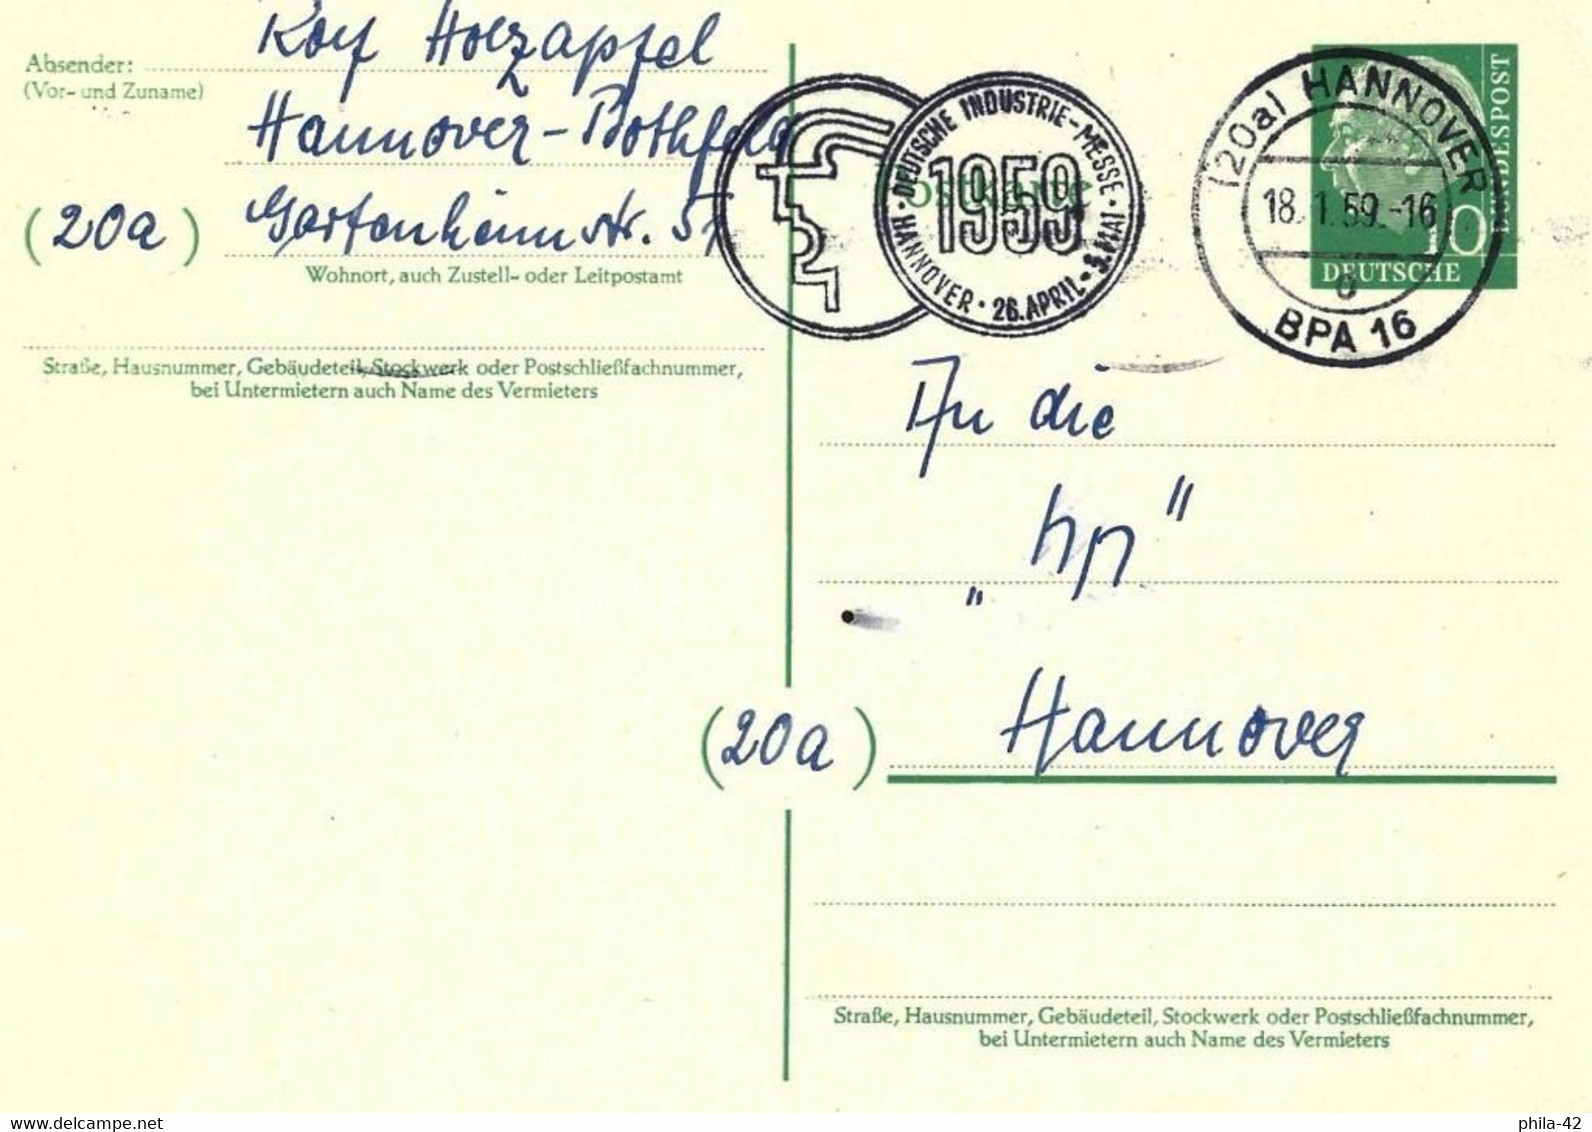 Absender: Rolf Holzapfel
(Vor- und Zuname)
Hannover-Bothfeld
(20a) Gartenheimstr. 57
Wohnort, auch Zustell- oder Leitpostamt
Straße, Hausnummer, Gebäudeteil, Stockwerk oder Postschließfachnummer,
bei Untermietern auch Name des Vermieters
Postkarte
· DEUTSCHE INDUSTRIE-MESSE · HANNOVER · 26. APRIL - 5. MAI
1959
(20a) HANNOVER
18.1.59.-16
BPA 16
DEUTSCHE
BUNDESPOST
10
An die
„hp"
(20a) Hannover
Straße, Hausnummer, Gebäudeteil, Stockwerk oder Postschließfachnummer,
bei Untermietern auch Name des Vermieters
phila-42